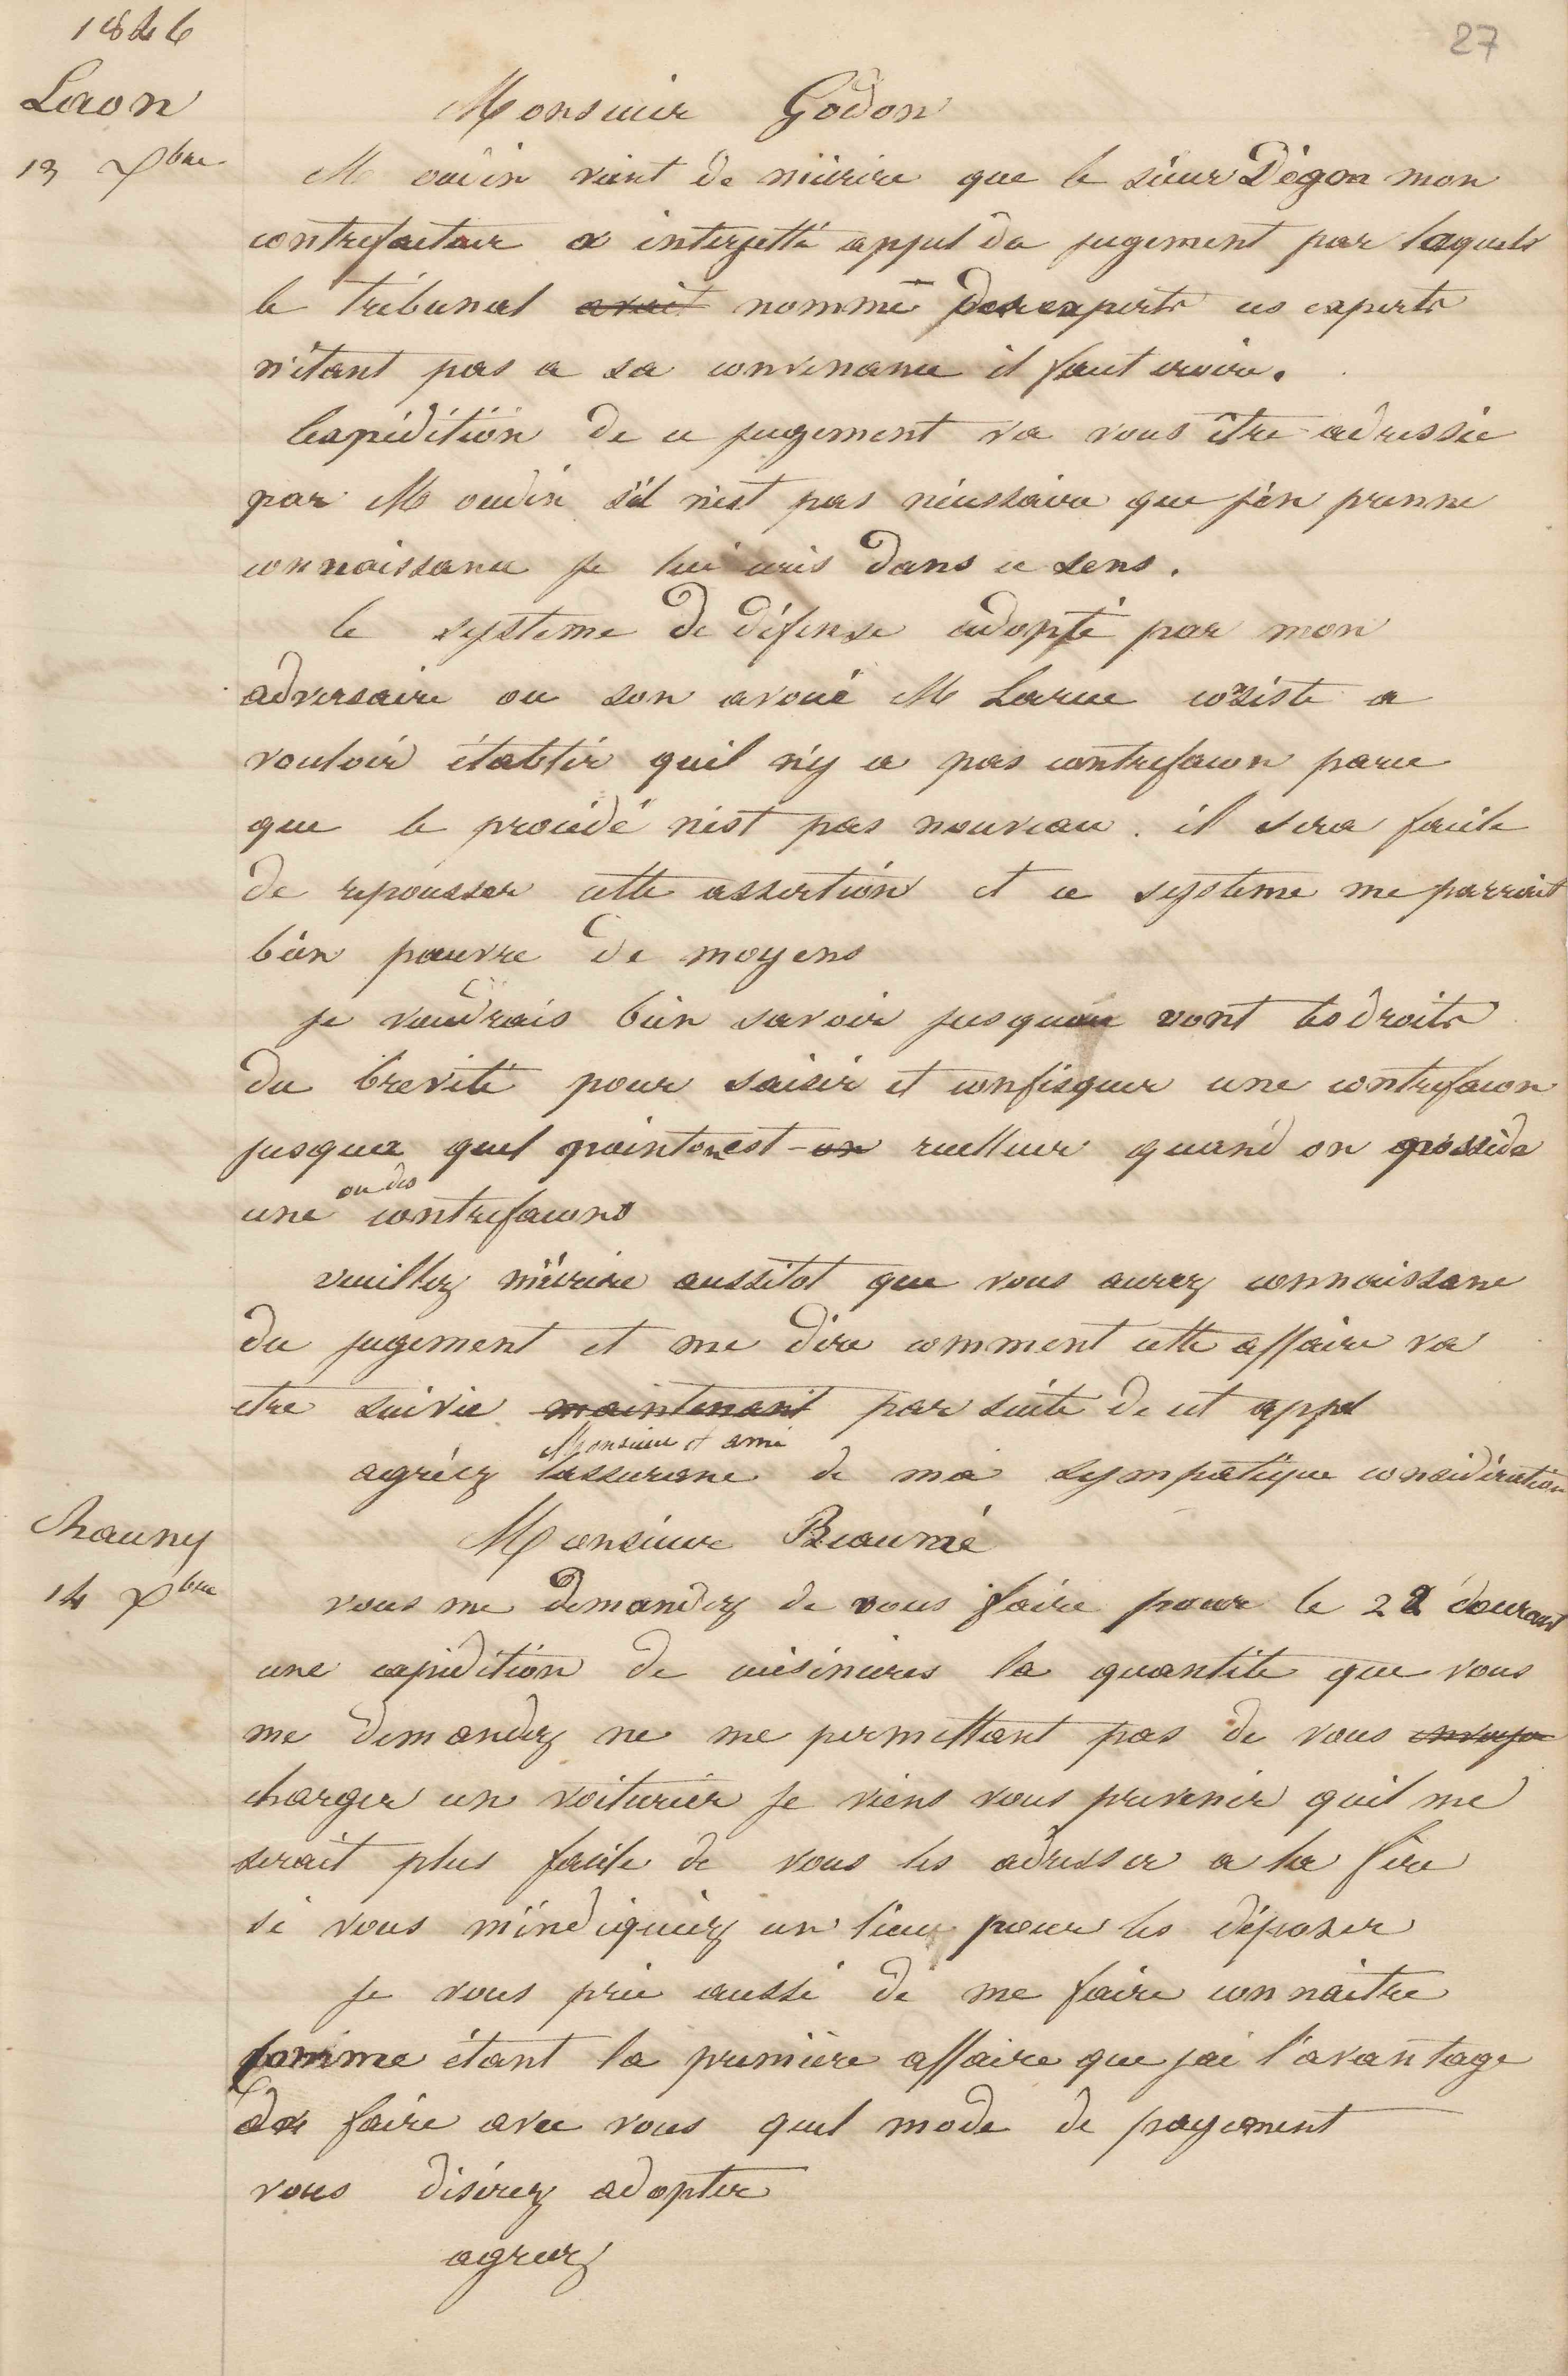 1846
27
Laon
13 Xbre
Monsieur Godon
M oudin vient de m'écrire que le sieur Dégon mon
contrefacteur a interjetté appel du jugement par laquels
le tribunal avait nommé des experts ces experts
n'étant pas a sa convenance il faut croire.
lexpédition de ce jugement va vous être adressée
par M oudin s'il n'est pas nécessaire que j'en prenne
connaissance je lui écris dans ce sens.
le systeme de défense adopté par mon
adversaire ou son avoué M Larue consiste a
vouloir établir quil n'y a pas contrefacon parce
que le procédé n'est pas nouveau. il sera facile
de repousser cette assertion et ce systeme me parrait
bien pauvre de moyens
je voudrais bien savoir jusquou vont les droits
du breveté pour saisir et confisquer une contrefacon
jusqua quel point on est on recelleur quand on possède
ou des
une contrefacons
veuillez m'écrire aussitot que vous aurez connaissance
du jugement et me dire comment cette affaire va
etre suivie maintenant par suite de cet appel
Monsieur et ami
agréez lassurance de ma sympatique considération
Chauny
14 Xbre
Monsieur Beaumé
vous me demandez de vous faire pour le 22 courant
une expédition de cuisinières la quantité que vous
me demandez ne me permettant pas de vous envoyer
charger un voiturier je viens vous prevenir quil me
serait plus facile de vous les adresser a la fère
si vous m'indiquiez un lieu pour les déposer
je vous prie aussi de me faire connaitre
comme étant la première affaire que jai l'avantage
de faire avec vous quel mode de payement
vous désirez adopter
agreez